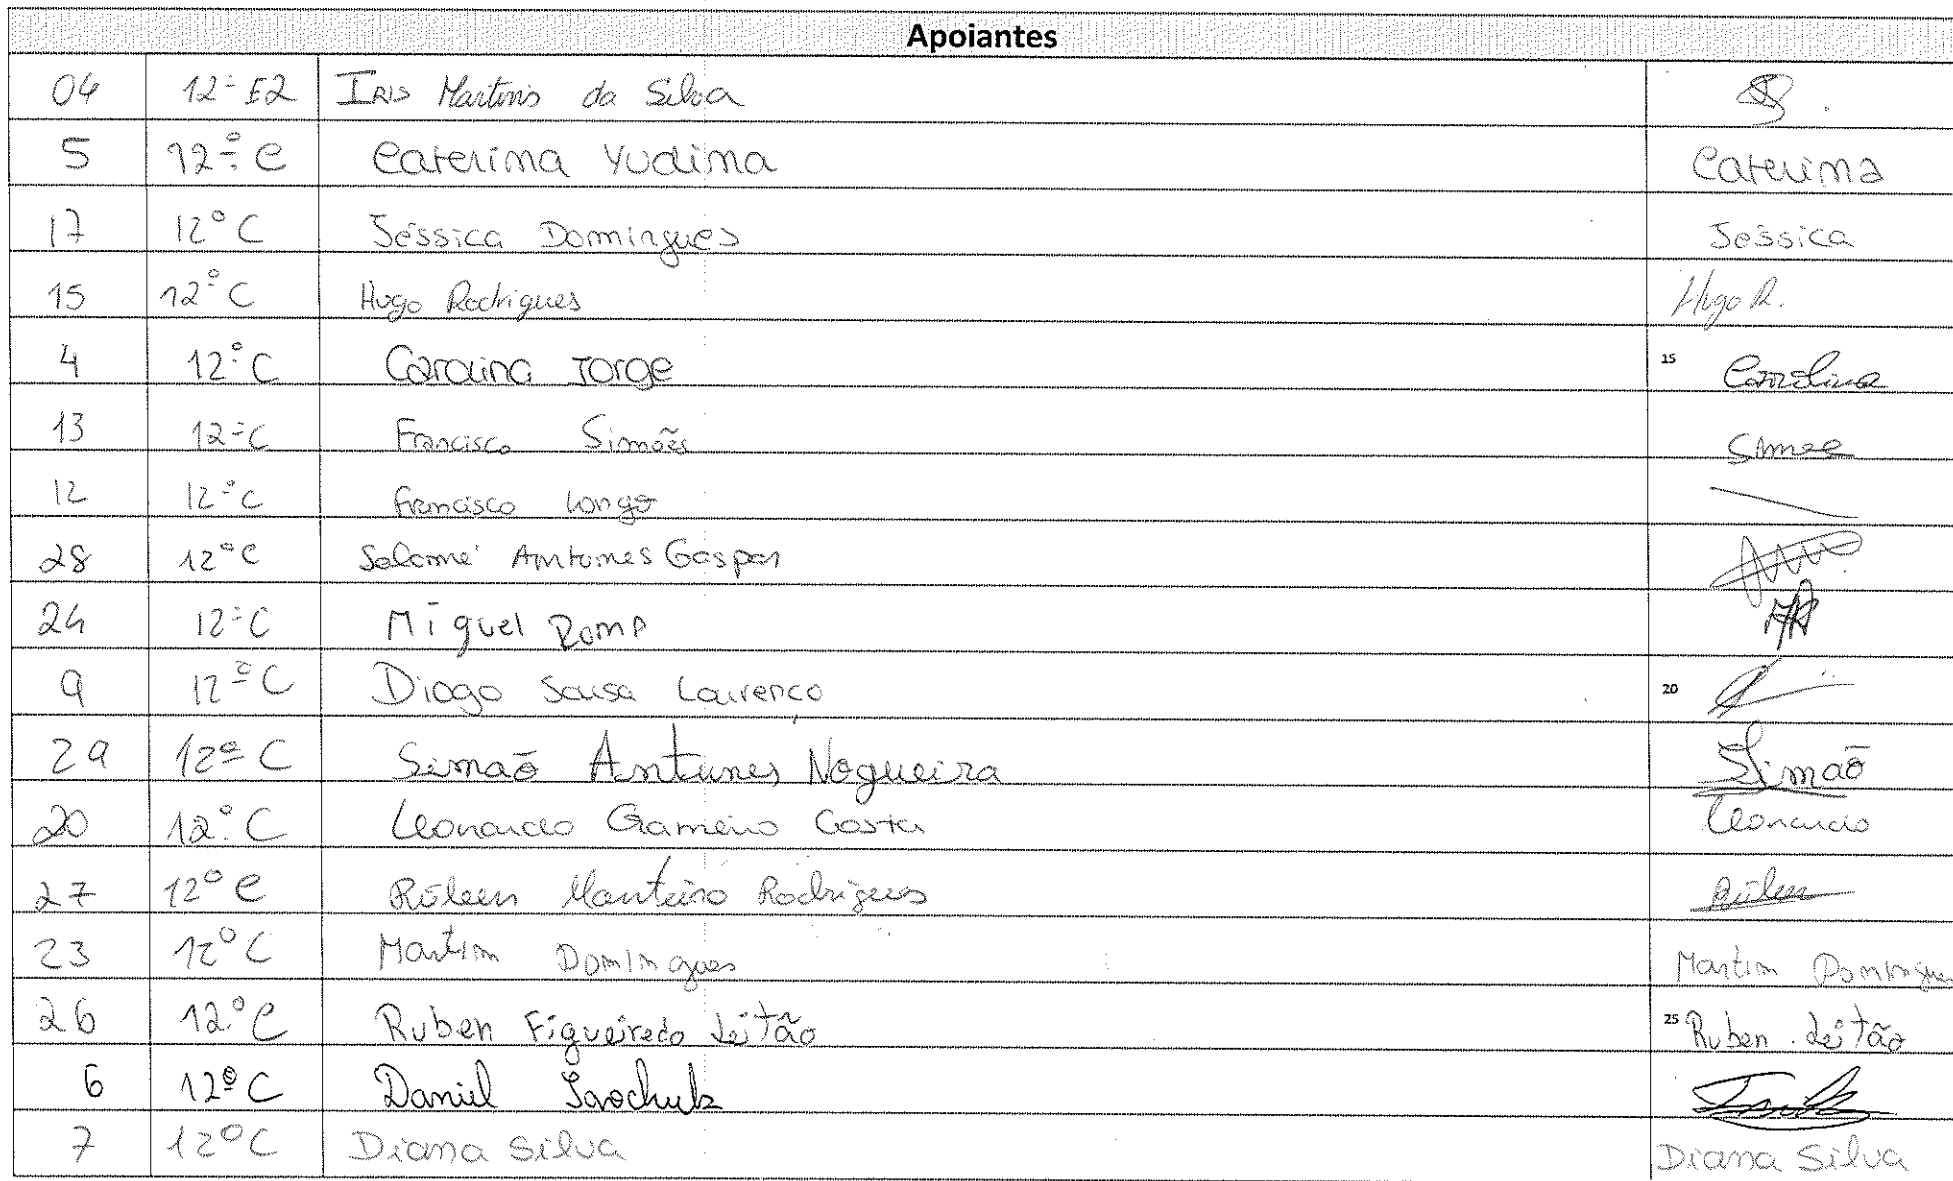 Apoiantes
04 12º E2 Iris Martins da Silva
5 12º C Caterina Yudina Caterina
17 12º C Jéssica Domingues Jéssica
15 12º C Hugo Rodrigues Hugo R.
4 12º C Carolina Jorge 15 Carolina
13 12º C Francisco Simões
12 12º C Francisco Longo
28 12º C Salomé Antunes Gaspar
24 12º C Miguel
9 12º C Diogo Sousa Lourenco 20
29 12º C Simão Antunes Nogueira Simão
20 12º C Leonardo Gameiro Costa Leonardo
27 12º C Rúben Monteiro Rodrigues Rúben
23 12º C Martim Domingues Martim Domingues
26 12º C Ruben Figueiredo Leitão 25 Ruben Leitão
6 12º C Daniel
7 12º C Diana Silva Diana Silva